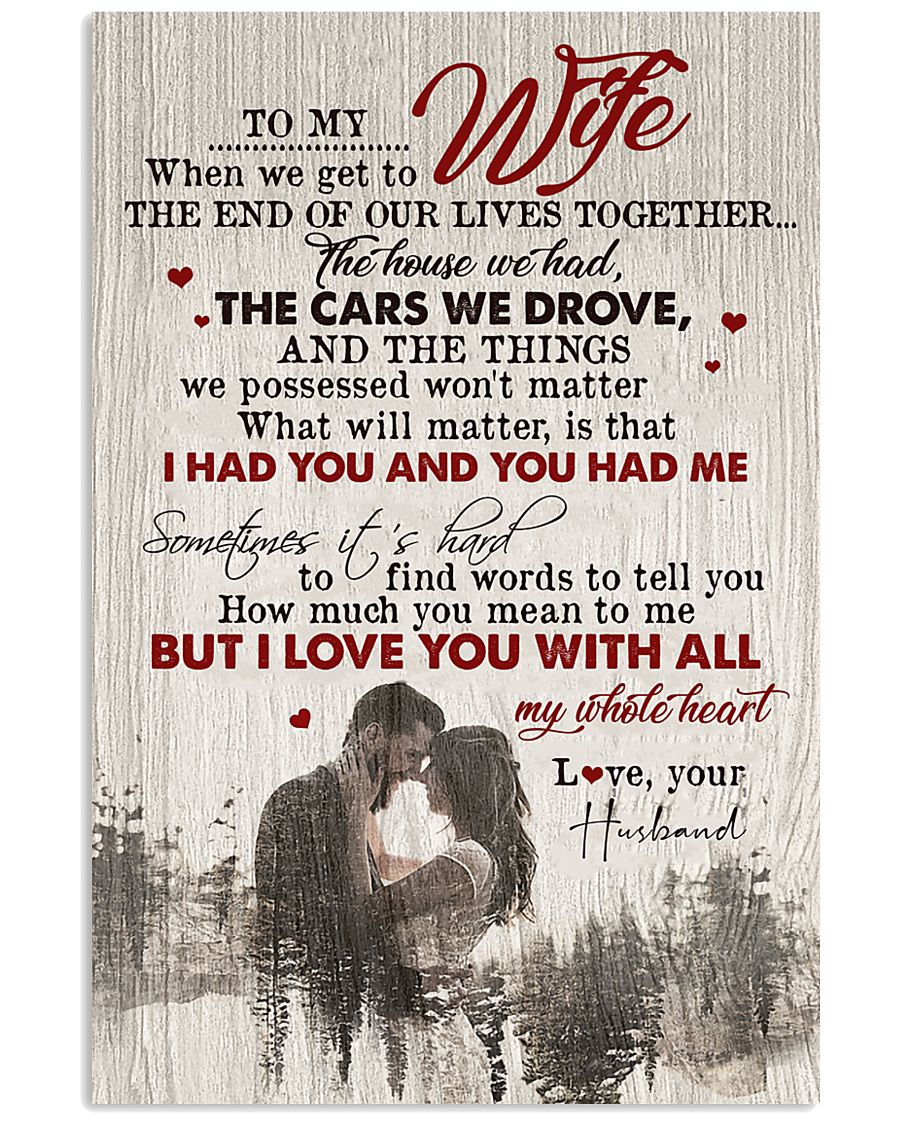 TO MY Wife
When we get to
THE END OF OUR LIVES TOGETHER...
The house we had,
THE CARS WE DROVE,
AND THE THINGS
we possessed won't matter
What will matter, is that
I HAD YOU AND YOU HAD ME
Sometimes it's hard
to find words to tell you
How much you mean to me
BUT I LOVE YOU WITH ALL
my whole heart
L♥ve, your
Husband